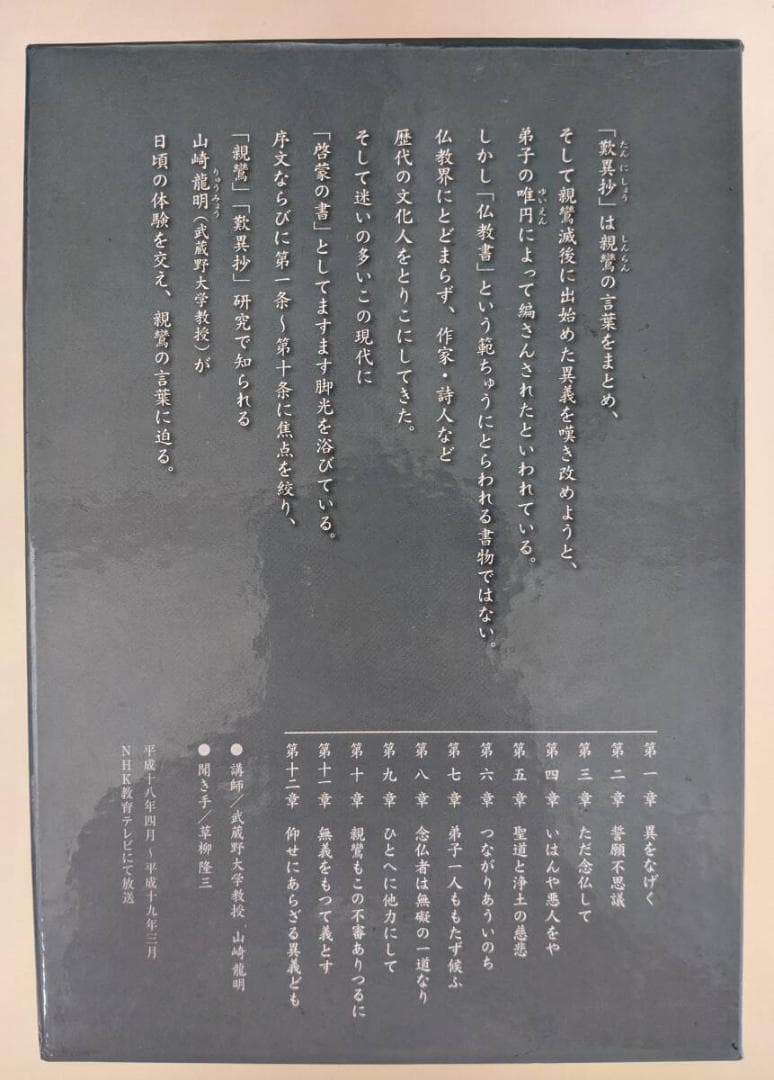 「歎異抄」は親鸞の言葉をまとめ、
そして親鸞滅後に出始めた異義を嘆き改めようと、
弟子の唯円によって編さんされたといわれている。
しかし「仏教書」という範ちゅうにとらわれる書物ではない。
仏教界にとどまらず、作家・詩人など
歴代の文化人をとりこにしてきた。
そして迷いの多いこの現代に
「啓蒙の書」としてますます脚光を浴びている。
序文ならびに第一条~第十条に焦点を絞り、
「親鸞」「歎異抄」研究で知られる
山崎龍明(武蔵野大学教授)が
日頃の体験を交え、親鸞の言葉に迫る。
たんにしょう
しんらん
ゆいえん
りゅうみょう
第一章 異をなげく
第二章 誓願不思議
第三章 ただ念仏して
第四章 いはんや悪人をや
第五章 聖道と浄土の慈悲
第六章 つながりあういのち
第七章 弟子一人ももたず候ふ
第八章 念仏者は無礙の一道なり
第九章 ひとへに他力にして
第十章 親鸞もこの不審ありつるに
第十一章 無義をもつて義とす
第十二章 仰せにあらざる異義ども
●講師/武蔵野大学教授 山崎龍明
●聞き手/草柳隆三
平成十八年四月~平成十九年三月
NHK教育テレビにて放送